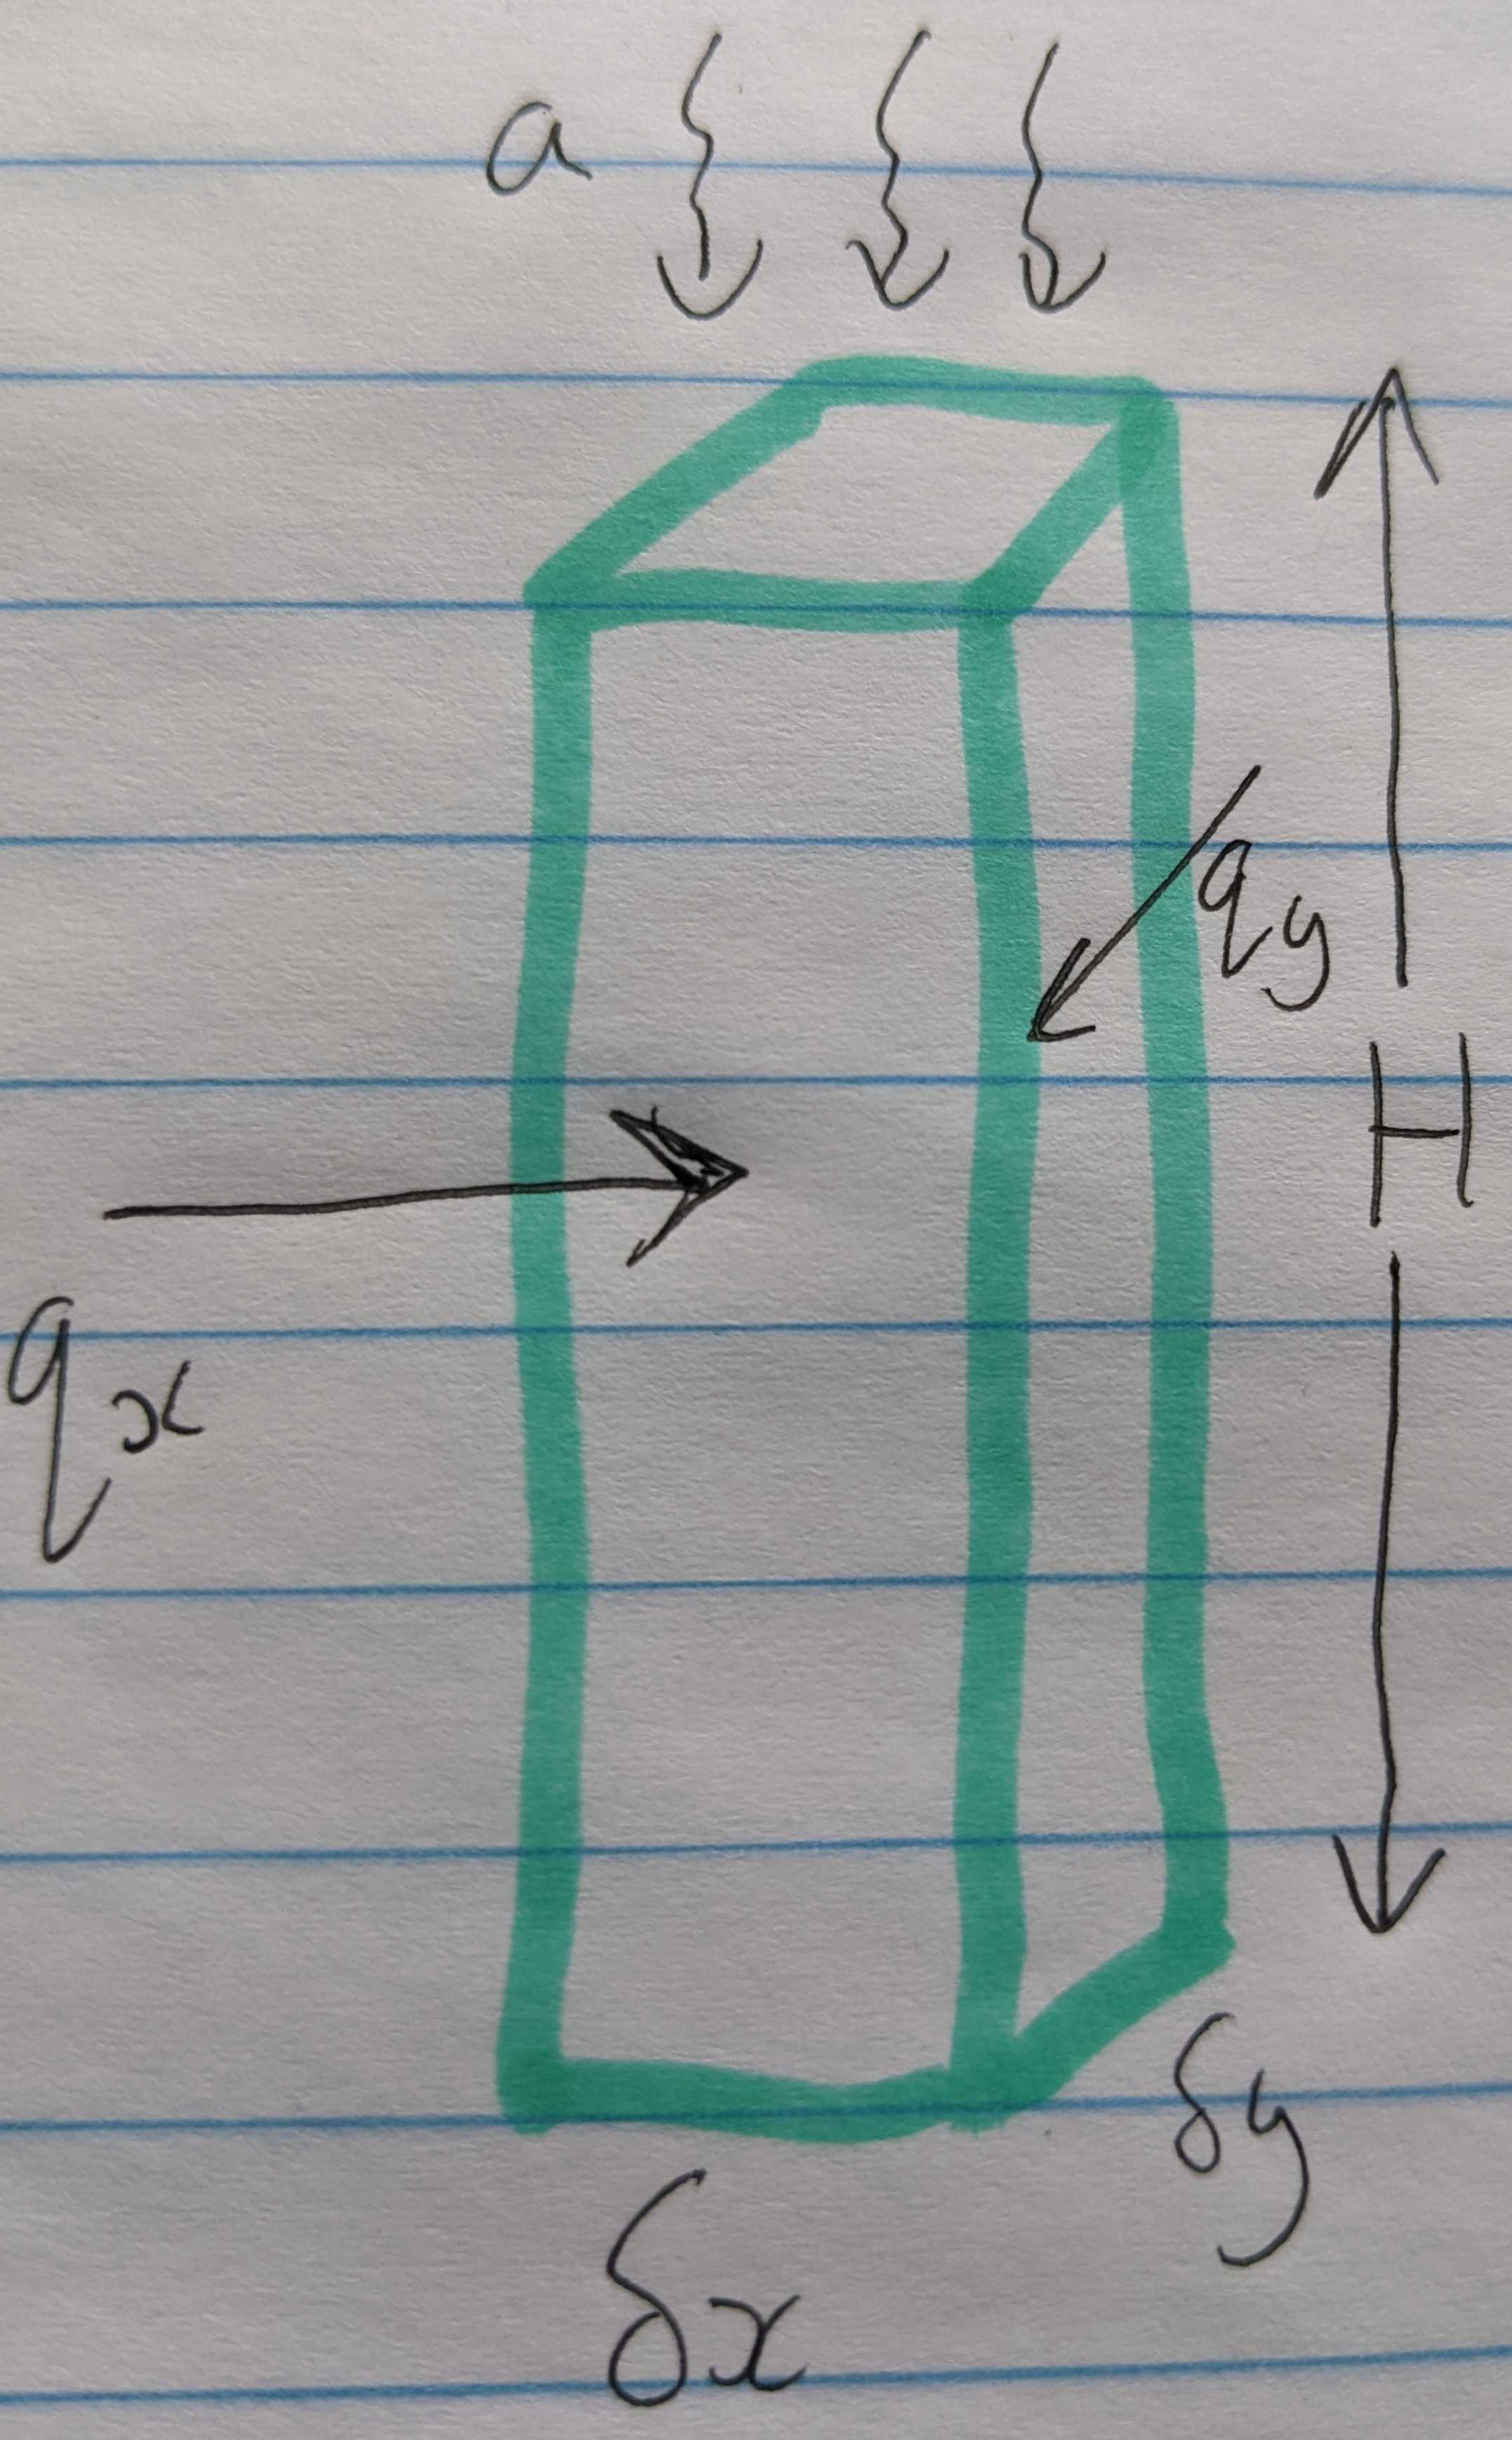 a
qy
H
qx
δy
δx